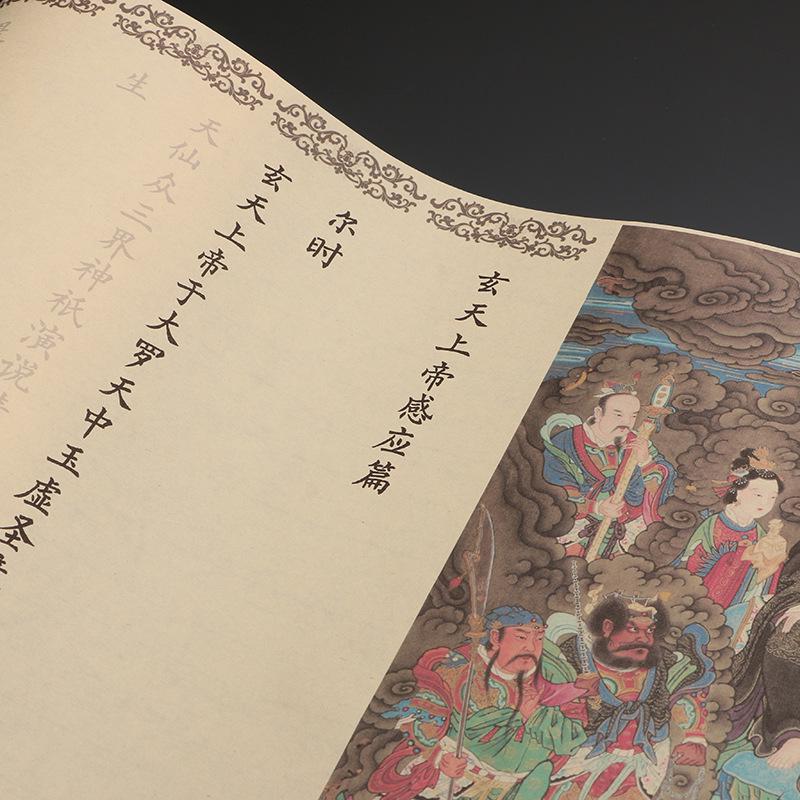 玄天上帝感应篇
尔时
玄天上帝于大罗天中玉虚圣
天仙众三界神祇演说
生